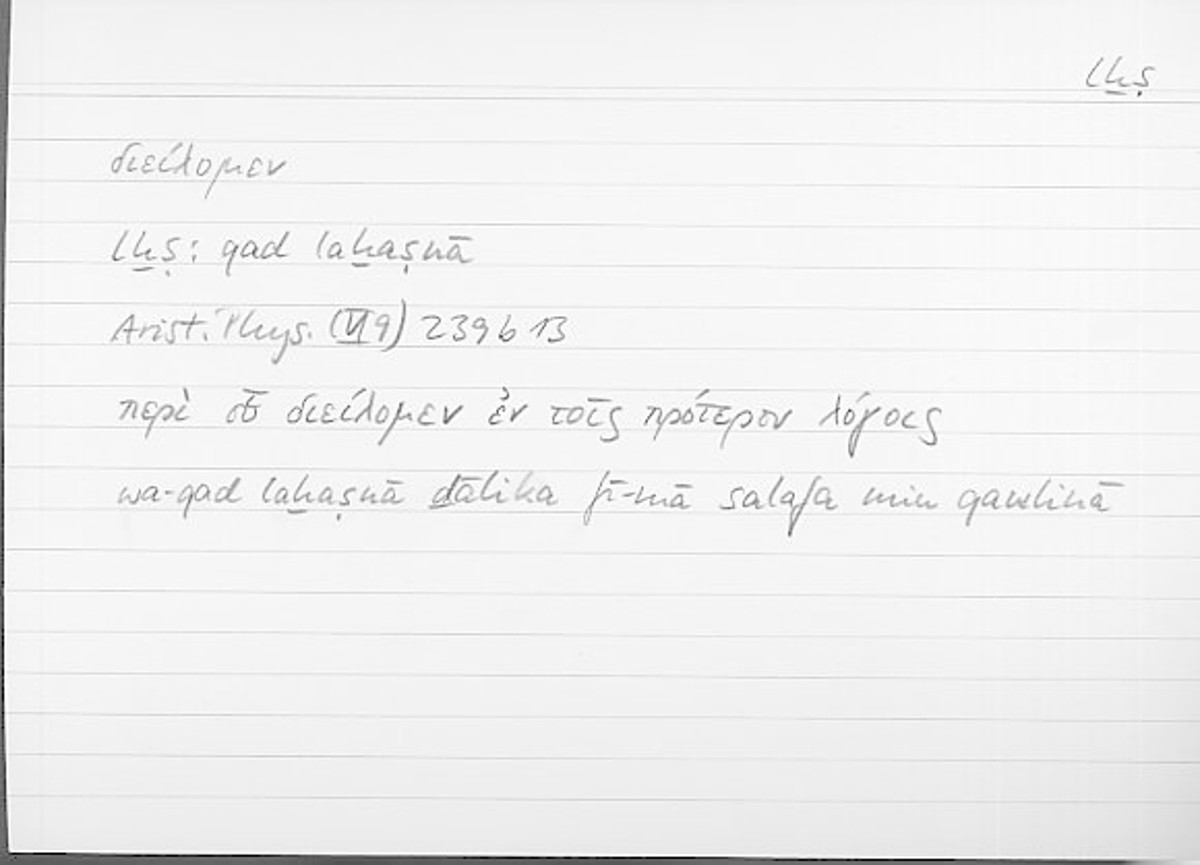 lḫṣ
διείλομεν
lḫṣ: qad laḫaṣnā
Arist. Phys. (VI 9) 239 b 13
περὶ οὗ διείλομεν ἐν τοῖς πρότερον λόγοις
wa-qad laḫaṣnā ḏālika fī-mā salafa min qawlinā